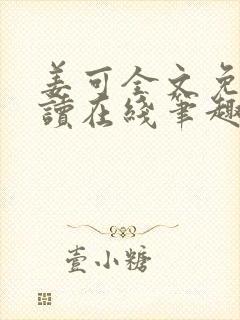 姜可全文免
讀在綫筆趣
壹小糖